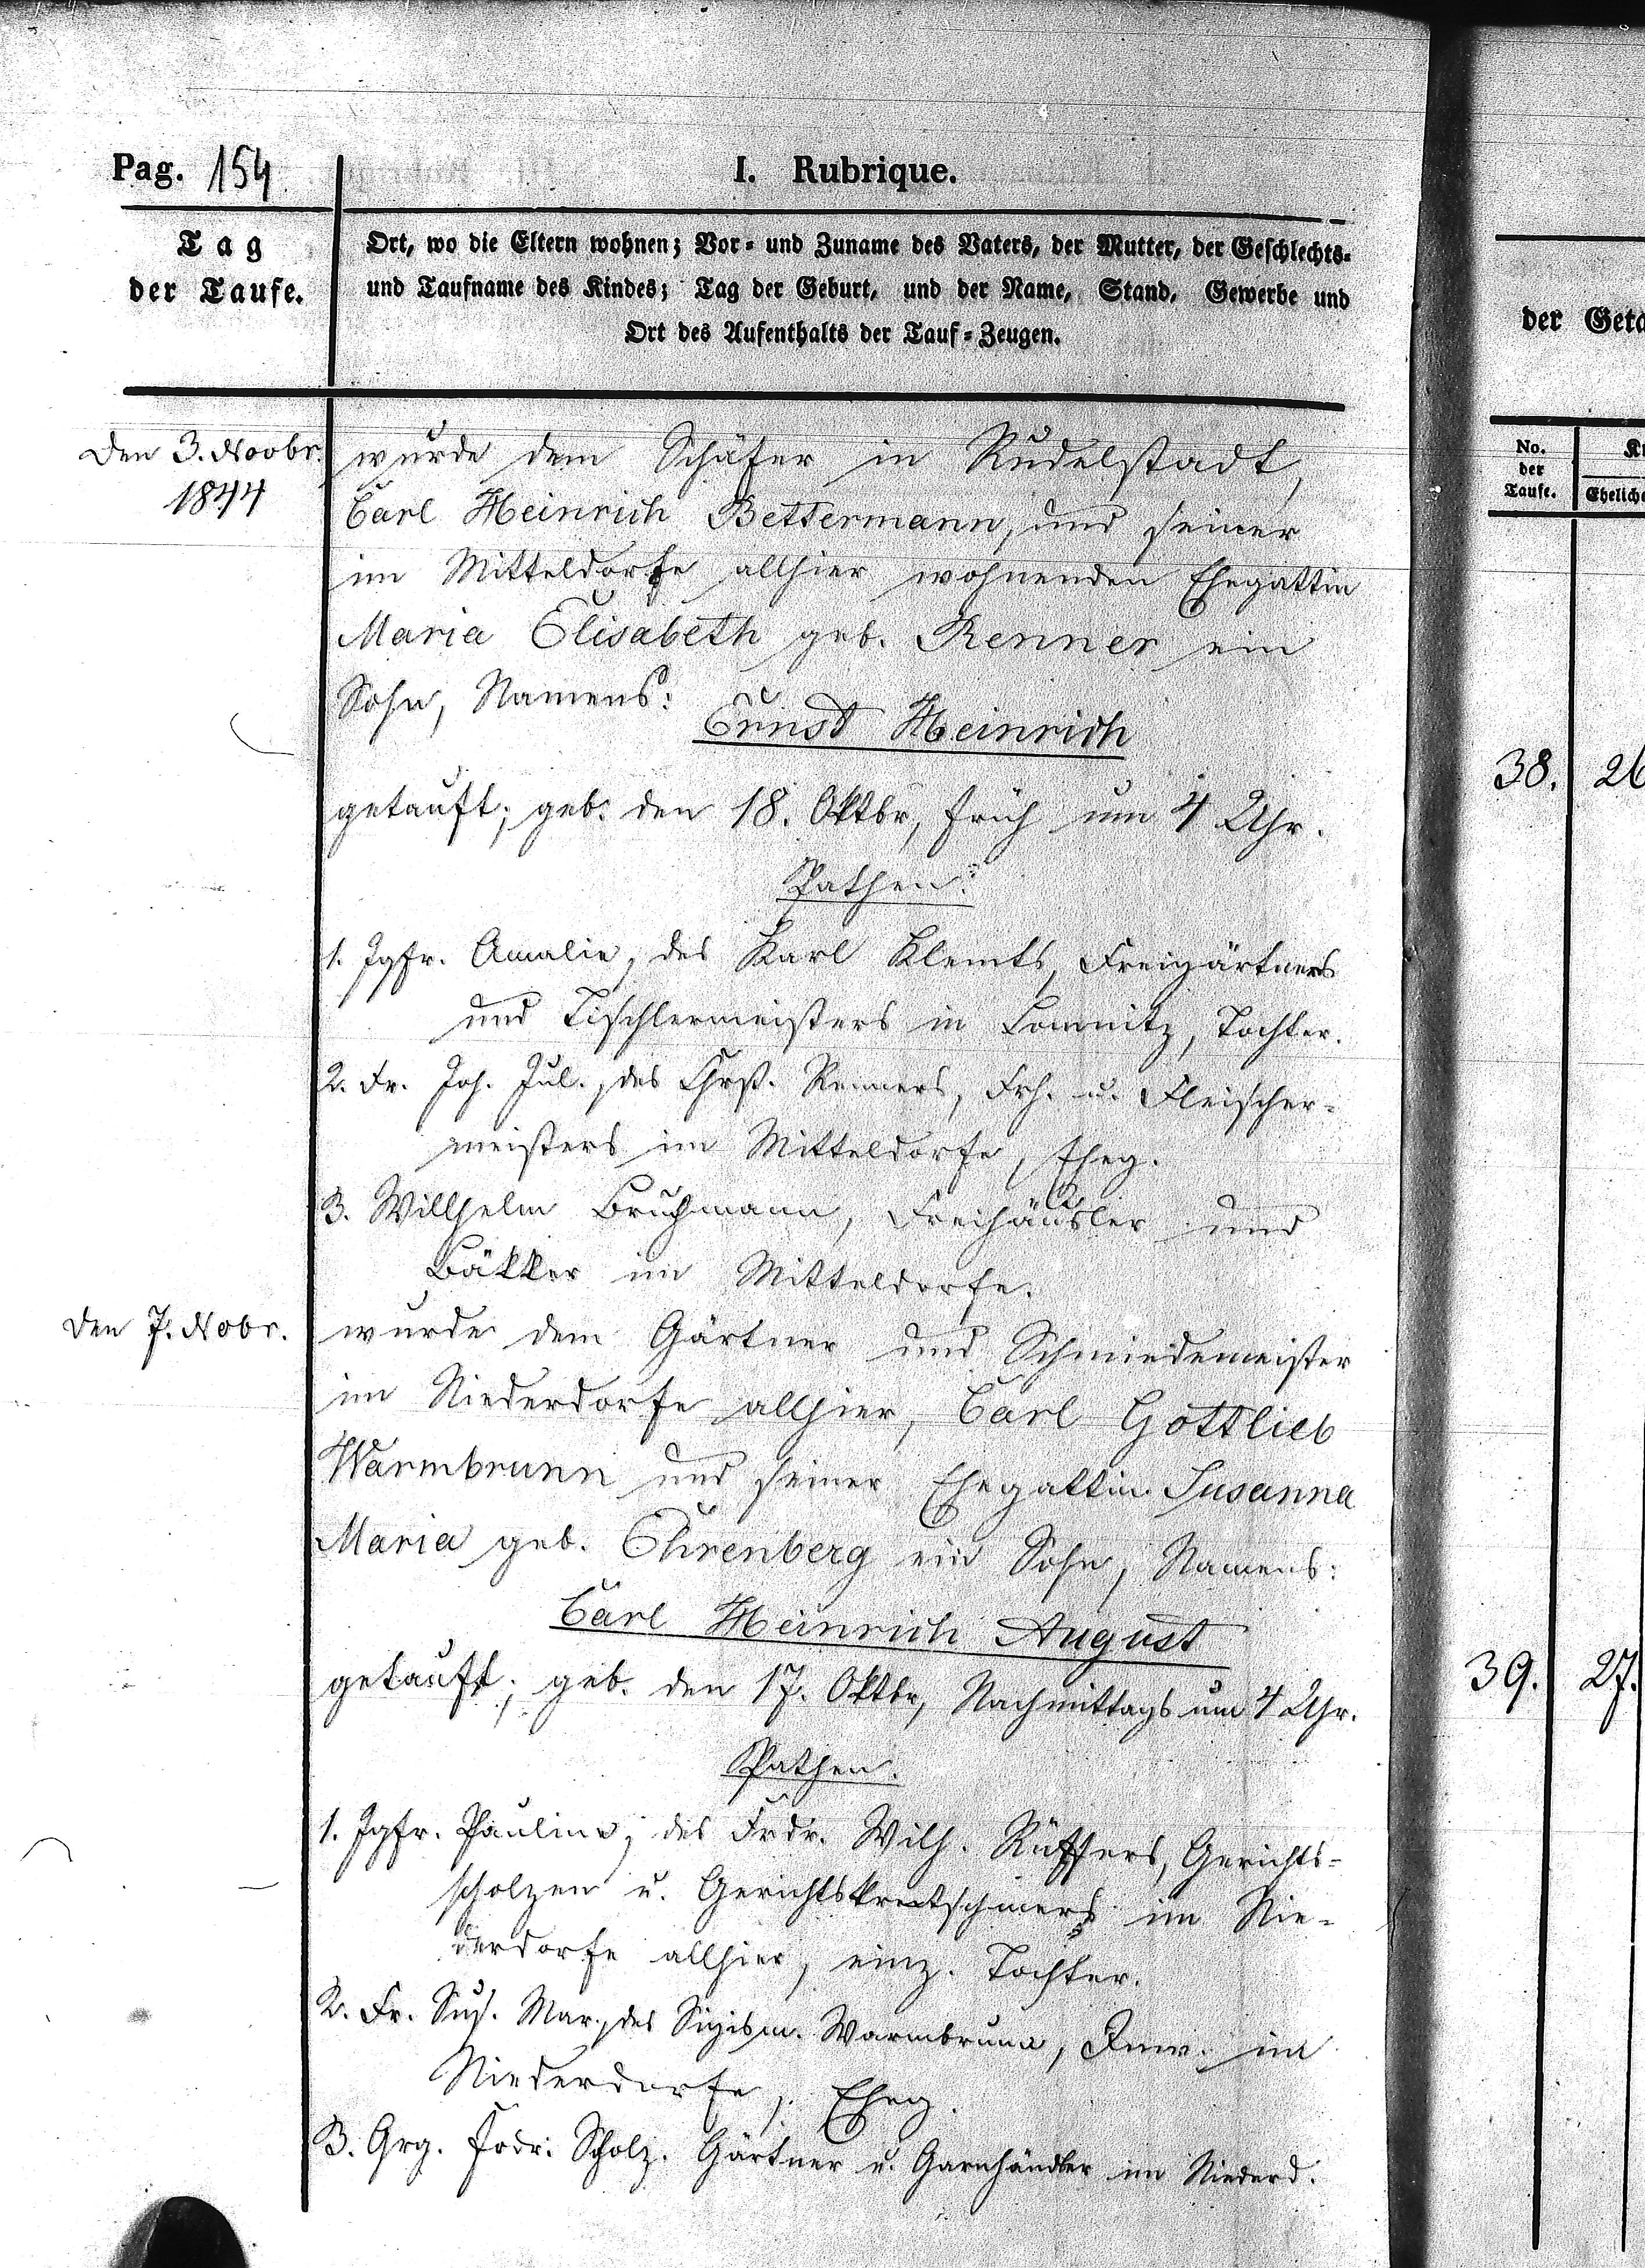 Pag. 154
I. Rubrique.
Tag
der Taufe.
Ort, wo die Eltern wohnen; Vor- und Zuname des Vaters, der Mutter, der Geschlechts-
und Taufname des Kindes; Tag der Geburt, und der Name, Stand, Gewerbe und
Ort des Aufenthalts der Tauf-Zeugen.
Den 3. Novbr.
1844
wurde dem Schäfer in Rudelstadt,
Carl Heinrich Bettermann, und seiner
im Mitteldorfe allhier wohnenden Ehegattin
Maria Elisabeth geb. Renner ein
Sohn, Namens:
Ernst Heinrich
getauft; geb. den 18. Oktbr, früh um 4 Uhr.
Pathen:
1. Jgfr. Amalie, des Karl Klemts, Freigärtners
und Tischlermeisters in Lomnitz, Tochter.
2. Fr. Joh. Jul., des Chrst. Renners, Frh. u. Fleischer-
meisters im Mitteldorfe, Eheg.
3. Willhelm Bruchmann, Freihäusler und
Bäkker im Mitteldorfe.
Den 7. Nobr.
wurde dem Gärtner und Schmiedemeister
im Niederdorfe allhier, Carl Gottlieb
Warmbrunn und seiner Ehegattin Susanna
Maria geb. Ehrenberg ein Sohn, Namens:
Carl Heinrich August
getauft; geb. den 17. Oktbr, Nachmittags um 4 Uhr.
Pathen.
1. Jgfr. Pauline, des Frdr. Wilh. Rüffers, Gerichts-
scholzen u. Gerichtskretschmers im Nie-
derdorfe allhier, einz. Tochter.
2. Fr. Sus. Mar., des Sigism. Warmbrunn, Inw. im
Niederdorfe, Eheg.
3. Grg. Frdr. Scholz. Gärtner u. Garnhändler im Niederd.
der Geta
No.
der
Taufe.
Ki
Eheliche
38. 26
39. 27.